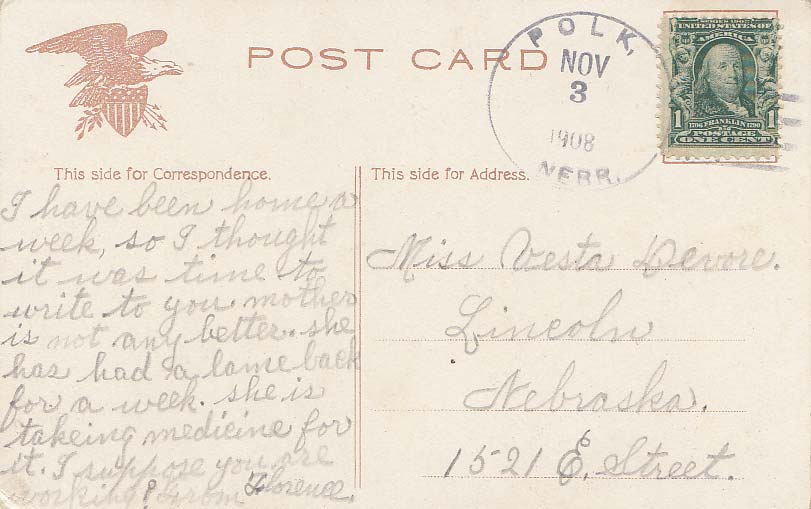 POST CARD
POLK,
NOV
3
1908
NEBR.
SERIES 1902
UNITED STATES OF
AMERICA
1706 FRANKLIN 1790
1 1
POSTAGE
ONE CENT
This side for Correspondence.
This side for Address.
I have been home a
week, so I thought
it was time to
write to you. mother
is not any better. she
has had a lame back
for a week. she is
takeing medicine for
it. I suppose you are
working? From Florence.
Miss Vesta Devore.
Lincoln
Nebraska.
1521 E. Street.